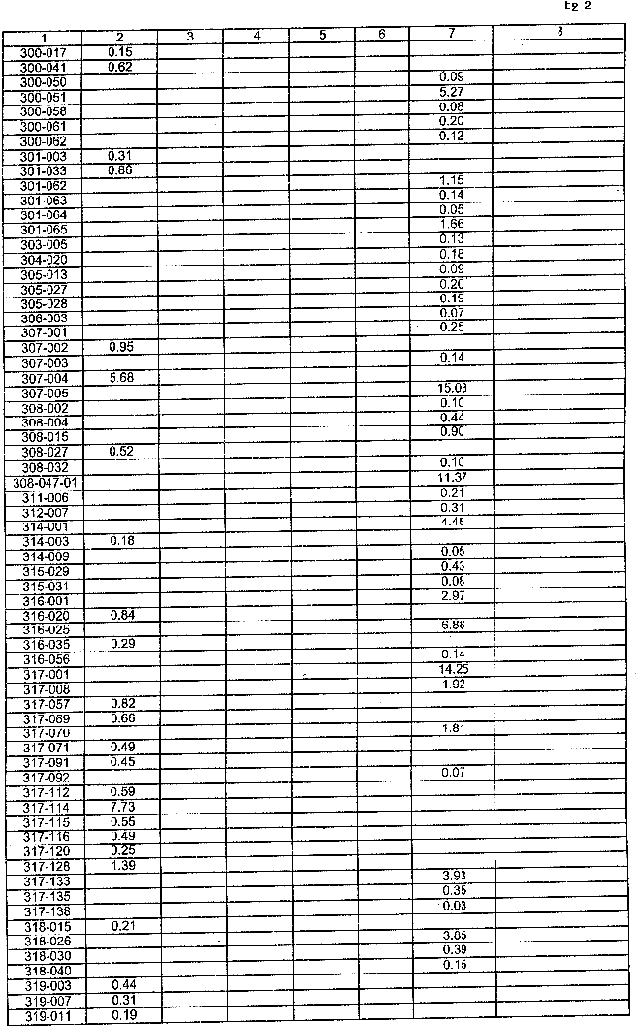 1 2 3 4 5 6 7
300-017 0.15
300-041 0.62
300-050 0.09
300-051 5.27
300-058 0.08
300-061 0.20
300-062 0.12
301-003 0.31
301-033 0.86
301-062 1.15
301-063 0.14
301-064 0.05
301-065 1.66
303-005 0.13
304-020 0.18
305-013 0.09
305-027 0.20
305-028 0.19
306-003 0.07
307-001 0.25
307-002 0.95
307-003 0.14
307-004 5.68
307-005 15.03
308-002 0.10
308-004 0.44
308-015 0.90
308-027 0.52
308-032 0.10
308-047-01 11.37
311-006 0.21
312-007 0.31
314-001
314-003 0.18
314-009
315-029 0.43
315-031
316-001 2.97
316-020 0.84
316-025
316-035 0.29
316-056 0.14
317-001 14.25
317-008 1.92
317-057 0.82
317-069 0.66
317-070
317-071 0.49
317-091 0.45
317-092 0.07
317-112 0.59
317-114 7.73
317-115 0.55
317-116 0.49
317-120 0.25
317-128 1.39
317-133 3.93
317-135
317-138 0.03
318-015 0.21
318-026
318-030 0.39
318-040
319-003 0.44
319-007 0.31
319-011 0.19